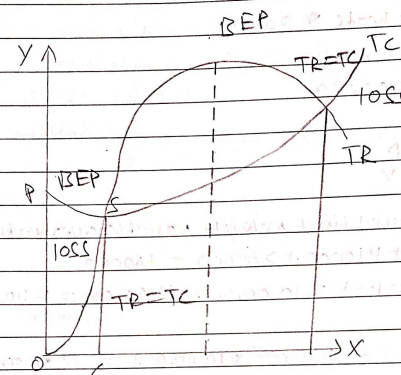 BEP
Y
TR=TC
TC
loss
TR
BEP
P
S
loss
TR=TC
X
O